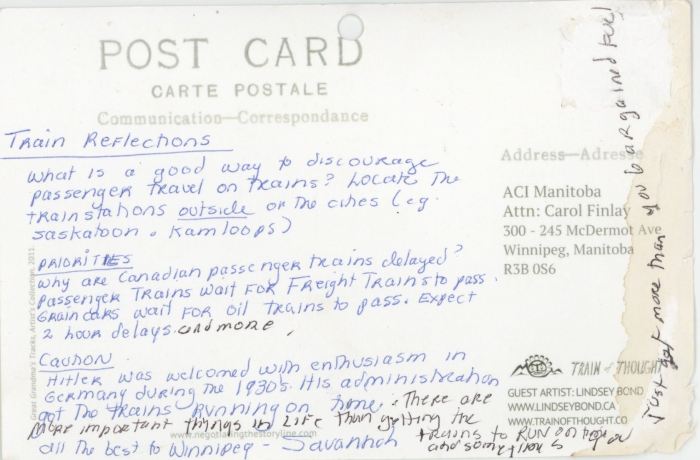 POST CARD
CARTE POSTALE
Communication—Correspondance
Train Reflections
What is a good way to discourage
passenger travel on trains? Locate the
trainstations outside of the cities (eg.
Saskatoon, Kamloops)
PRIORITIES
Why are Canadian passenger trains delayed?
Passenger Trains wait FOR Freight Trains to pass.
Graincars wait FOR oil trains to pass. Expect
2 hour delays and more.
Caution
Hitler was welcomed with enthusiasm in
Germany during the 1930s. His administration
got the trains running on time. There are
more important things in Life than getting the
trains to RUN on time
and sometimes you
Just get more than you bargained for!
All the best to Winnipeg - Savannah
www.negotiatingthestoryline.com
Great Grandma's Tracks, Artist's Collection, 2011.
Address—Adresse
ACI Manitoba
Attn: Carol Finlay
300 - 245 McDermot Ave
Winnipeg, Manitoba
R3B 0S6
TRAIN OF THOUGHT
GUEST ARTIST: LINDSEY BOND
WWW.LINDSEYBOND.CA
WWW.TRAINOFTHOUGHT.CO